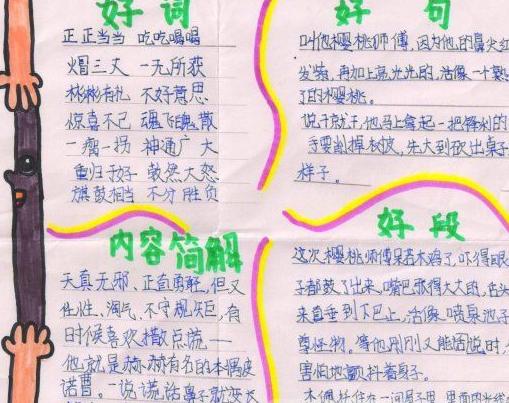 好词
正正当当 吃吃喝喝
火冒三丈 一无所获
彬彬有礼 不好意思
惊喜不已 魂飞魄散
一瘸一拐 神通广大
重归于好 勃然大怒
旗鼓相当 不分胜负
好句
叫他樱桃师傅,因为他的鼻尖红
发紫,再加上亮光光的,活像一个熟
了的樱桃。
说干就干,他马上拿起一把锋利的
要削掉树皮,先大到砍出桌子
样子。
内容简解
天真无邪、正直勇敢,但又
任性、淘气、不守规矩,有
时候喜欢撒点谎——
他就是赫赫有名的木偶皮
诺曹。一说谎话鼻子就变长
好段
这次樱桃师傅呆若木鸡了,吓得眼
子都鼓了出来,嘴巴张得大大的,舌头
来直垂到下巴上,活像喷泉池子
尊怪物。等他刚刚又能话说时,
害怕地颤抖着身子。